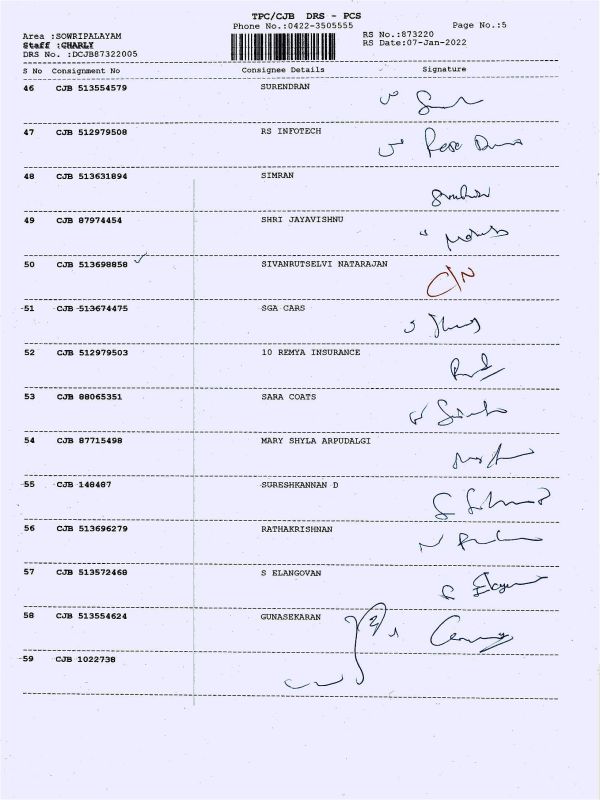 TPC/CJB DRS - PCS
Phone No.:0422-3505555 Page No.:5
Area :SOWRIPALAYAM RS No.:873220
Staff :CHARLY RS Date:07-Jan-2022
DRS No. :DCJB87322005
S No Consignment No Consignee Details Signature
46 CJB 513554579 SURENDRAN
47 CJB 512979508 RS INFOTECH
48 CJB 513631894 SIMRAN
49 CJB 87974454 SHRI JAYAVISHNU
50 CJB 513698858 SIVANRUTSELVI NATARAJAN C/N
51 CJB 513674475 SGA CARS
52 CJB 512979503 10 REMYA INSURANCE
53 CJB 88065351 SARA COATS
54 CJB 87715498 MARY SHYLA ARPUDALGI
55 CJB 148487 SURESHKANNAN D
56 CJB 513696279 RATHAKRISHNAN
57 CJB 513572468 S ELANGOVAN
58 CJB 513554624 GUNASEKARAN
59 CJB 1022738